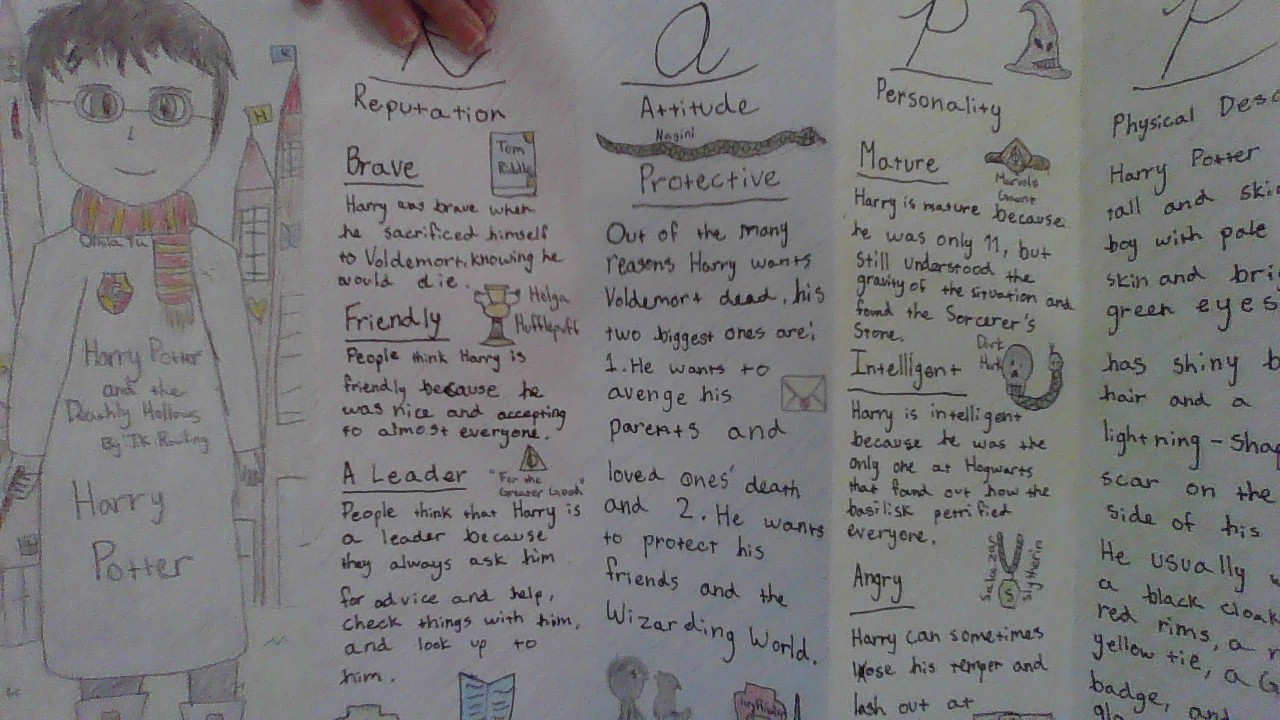 Olivia Yu
Harry Potter
and the
Deathly Hallows
By J.K. Rowling
Harry
Potter
K
H
R
Reputation
Brave
Tom
Riddle
Harry was brave when
he sacrificed himself
to Voldemort, knowing he
would die.
Friendly
Helga
Hufflepuff
People think Harry is
friendly because he
was nice and accepting
to almost everyone.
A Leader
"For the
Greater Good"
People think that Harry is
a leader because
they always ask him
for advice and help,
check things with him,
and look up to
him.
a
Attitude
Nagini
Protective
Out of the many
reasons Harry wants
Voldemort dead, his
two biggest ones are:
1. He wants to
avenge his
parents and
loved ones' death
and 2. He wants
to protect his
friends and the
Wizarding World.
P
Personality
Mature
Marvolo
Gaunt
Harry is mature because
he was only 11, but
still understood the
gravity of the situation and
found the Sorcerer's
Stone.
Intelligent
Dark
Harry is intelligent
because he was the
only one at Hogwarts
that found out how the
basilisk petrified
everyone.
Salazar
Slytherin
S
Angry
Harry can sometimes
lose his temper and
lash out at
P
Physical Desc
Harry Potter
tall and skin
boy with pale
skin and bri
green eyes
has shiny b
hair and a
lightning-shap
scar on the
side of his
He usually w
a black cloak
red rims, a r
yellow tie, a G
badge, and
gla